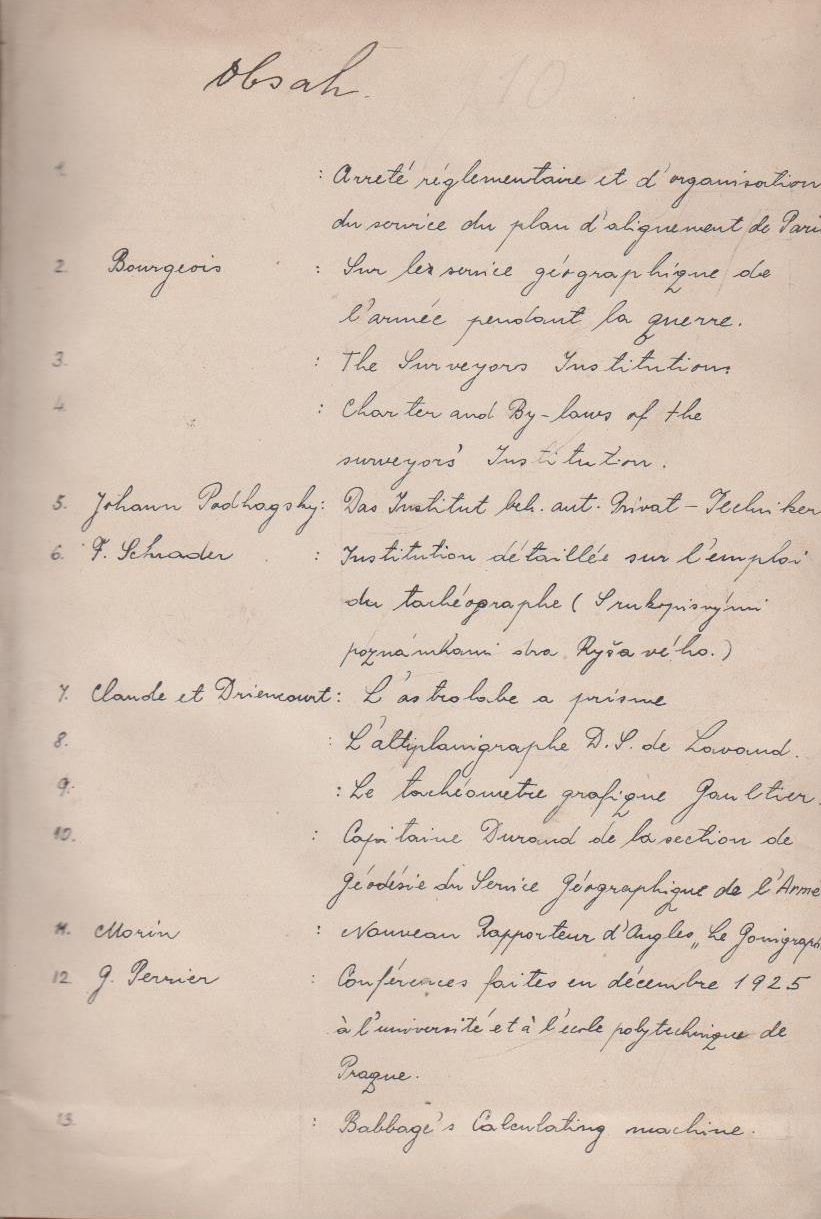 Obsah.
10
1. : Arreté réglementaire et d'organisation
du service du plan d'alignement de Paris
2. Bourgeois : Sur le service géographique de
l'armée pendant la guerre.
3. : The Surveyors Institutions
4. : Charter and By-laws of the
surveyors' Institution.
5. Johann Podhagsky: Das Institut beh. aut. Privat-Techniker
6. F. Schrader : Institution détaillée sur l'emploi
du tachéographe (S rukopisnými
poznámkami dra Ryšavého.)
7. Claude et Driencourt: L'astrolabe a prisme
8. : L'altiplanigraphe D. S. de Lavaud.
9. : Le tachéometre grafique Gaultier.
10. : Capitaine Durand de la section de
Géodésie du Service Géographique de l'Arme
11. Morin : Nouveau Rapporteur d'Angles „Le Gonigraph
12 G. Perrier : Conférences faites en décembre 1925
à l'université et à l'école polytechnique de
Prague.
13. : Babbage's Calculating machine.